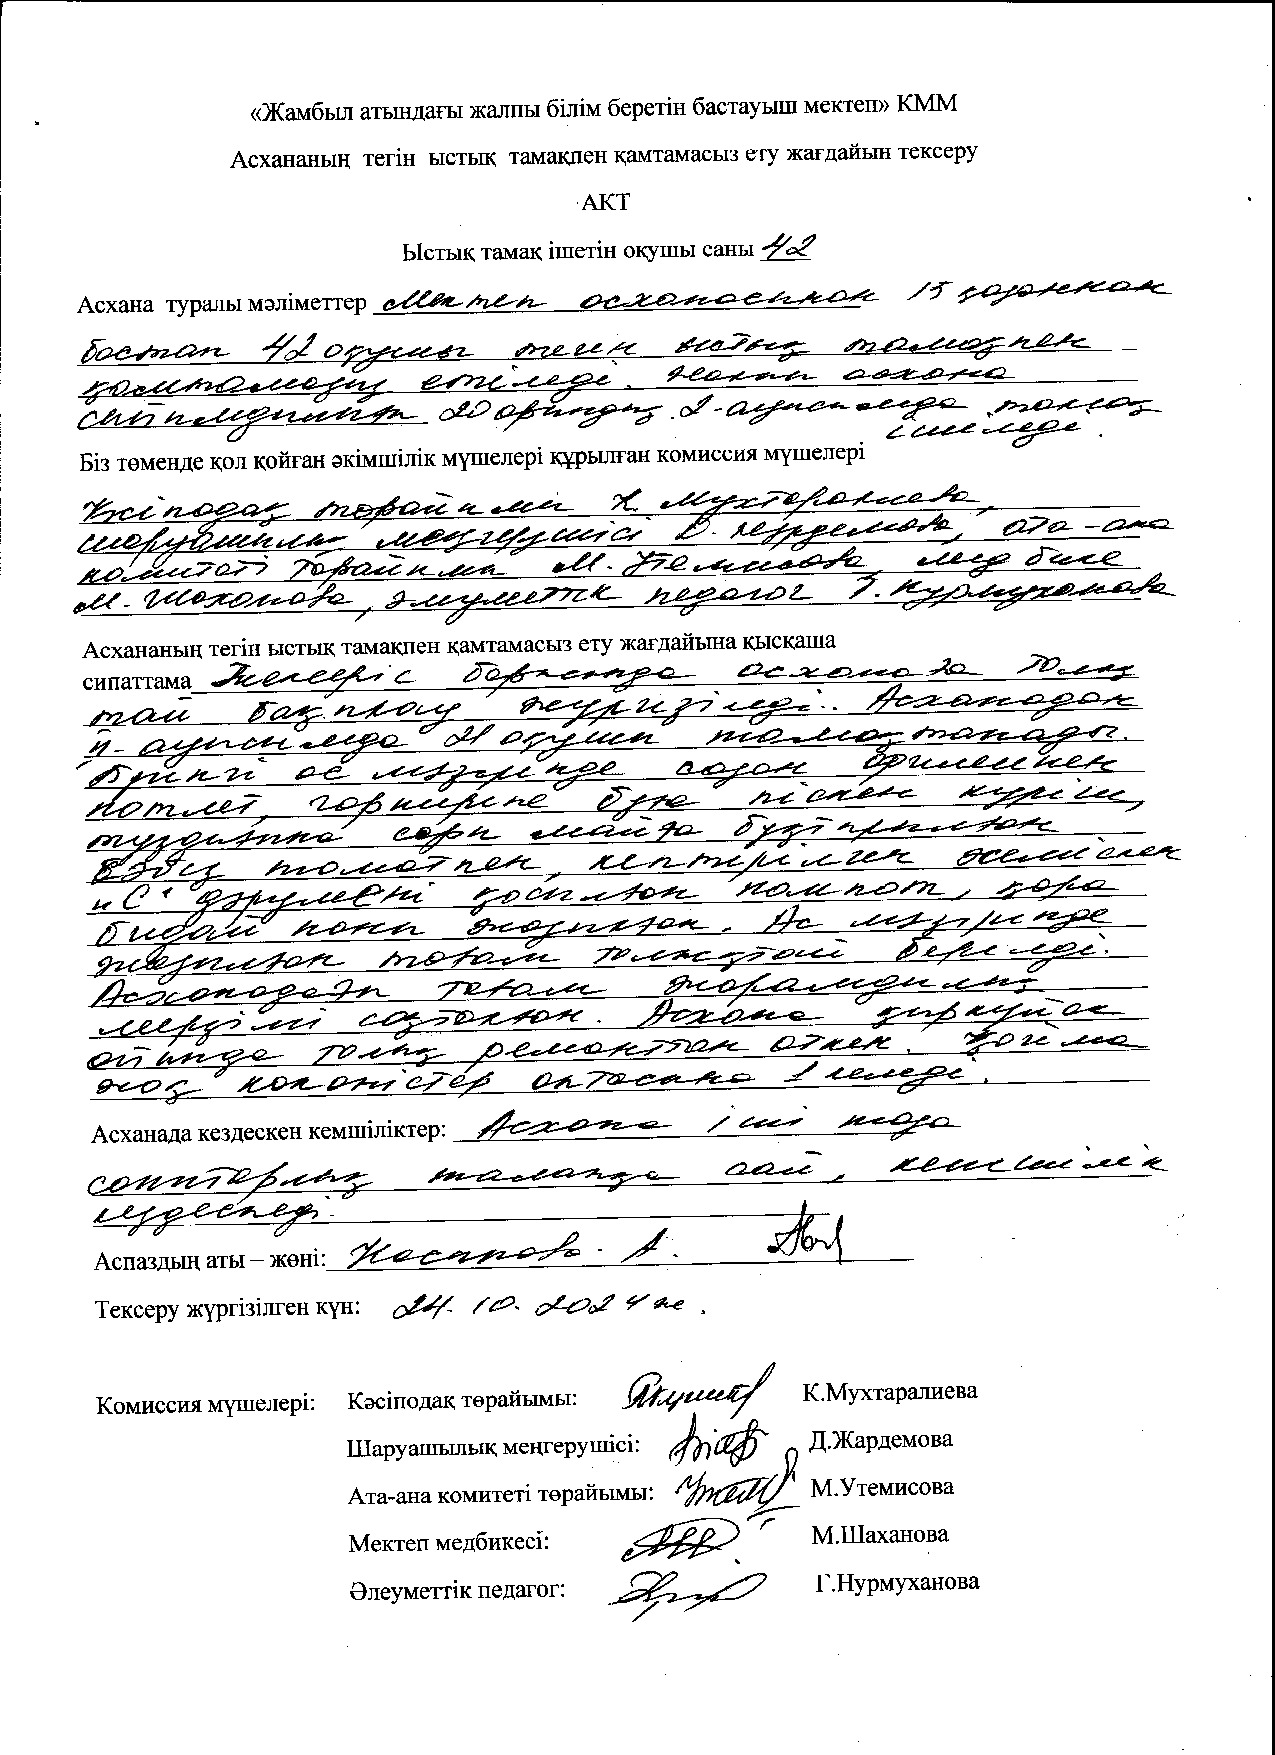 «Жамбыл атындағы жалпы білім беретін бастауыш мектеп» КММ
Асхананың тегін ыстық тамақпен қамтамасыз ету жағдайын тексеру
АКТ
Ыстық тамақ ішетін оқушы саны 42
Асхана туралы мәліметтер Мектеп асханасынан 15 қазаннан
бастап 42 оқушы тегін ыстық тамақпен
қамтамасыз етіледі. Жалпы асхана
20 орындық. 2-ауысымда тамақ
ішеледі.
Біз төменде қол қойған әкімшілік мүшелері құрылған комиссия мүшелері
Кәсіподақ төрайымы К. Мухтаралиева,
шаруашылық меңгерушісі Д. Жардемова, ата-ана
комитеті төрайымы М. Утемисова, медбике
М. Шаханова, әлеуметтік педагог Г. Нурмуханова
Асхананың тегін ыстық тамақпен қамтамасыз ету жағдайына қысқаша
сипаттама Тексеріс барысында асханада толық
тай бақылау жүргізілді. Асханадан
II-ауысымда 21 оқушы тамақтанады.
Бүгінгі ас мәзірінде сазан филесінен
котлет, гарнирге буға піскен күріш,
тұздықпа сары майға бұқтырылған
сәбіз томатпен, кептірілген жеміспен
"С" дәрумені қосылған компот, қара
бидай наны жазылған. Ас мәзірінде
жазылған тағам толықтай берілді.
Асханадағы тағам жарамдылық
мерзімі сақталған. Асхана қыркүйек
айында толық ремонттан өткен. Қойма
жоқ көкөністер аптасына 1 келеді.
Асханада кездескен кемшіліктер: Асхана іші таза
санитарлық талапқа сай, кемшілік
кездеспеді.
Аспаздың аты – жөні: А.
Тексеру жүргізілген күн: 24. 10. 2024 ж.
Комиссия мүшелері: Кәсіподақ төрайымы: К.Мухтаралиева
Шаруашылық меңгерушісі: Д.Жардемова
Ата-ана комитеті төрайымы: М.Утемисова
Мектеп медбикесі: М.Шаханова
Әлеуметтік педагог: Г.Нурмуханова